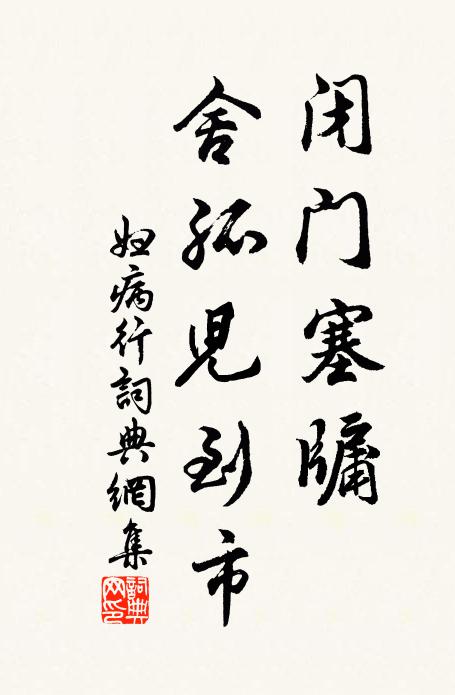 闭门塞牖
舍孤児到市
妇病行詞典網集
詞典网印